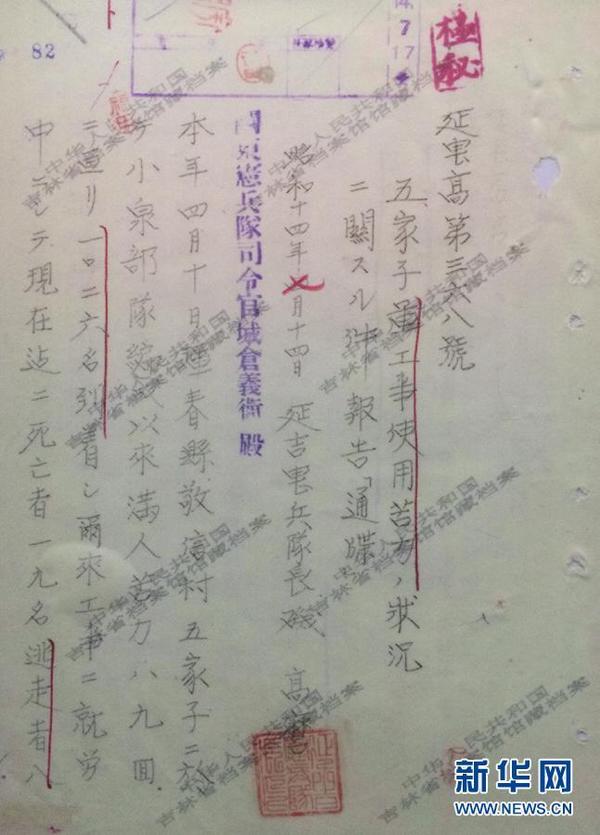 極秘
延憲高第三六八號
五家子軍工事使用苦力ノ狀況
ニ關スル件「報告「通牒」
昭和十四年七月十四日 延吉憲兵隊長 磯 高麿
關東憲兵隊司令官城倉義衛 殿
本年四月十日琿春縣敬信村五家子ニ於
テ小泉部隊編成以來滿人苦力八九回
ニ亘リ一〇二六名到着シ爾來工事ニ就労
中ニシテ現在迄ニ死亡者一九名逃走者八
82
14.7.17
中华人民共和国
吉林省档案馆馆藏档案
新华网
WWW.NEWS.CN